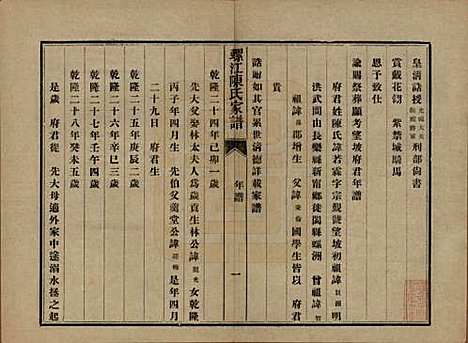 皇清誥授光祿大夫振威將軍刑部尚書
賞戴花翎 紫禁城騎馬
恩予致仕
諭賜祭葬顯考望坡府君年譜
府君姓陳氏諱若霖字宗覲號望坡初祖諱
明
洪武間由長樂縣新甯鄉徙閩縣螺洲 曾祖諱
祖諱 郡增生 父諱 國學生皆以 府君
貴
誥贈如其官累世清德詳載家譜
乾隆二十四年己卯一歲
先大父娶林太夫人爲貢生林公諱 女乾隆
丙子年四月生 先伯父蘭堂公諱 是年四月
二十九日 府君生
乾隆二十五年庚辰二歲
乾隆二十六年辛巳三歲
乾隆二十七年壬午四歲
乾隆二十八年癸未五歲
是歲 府君從 先大母適外家中途溺水拯之起
螺江陳氏家譜
年譜
一